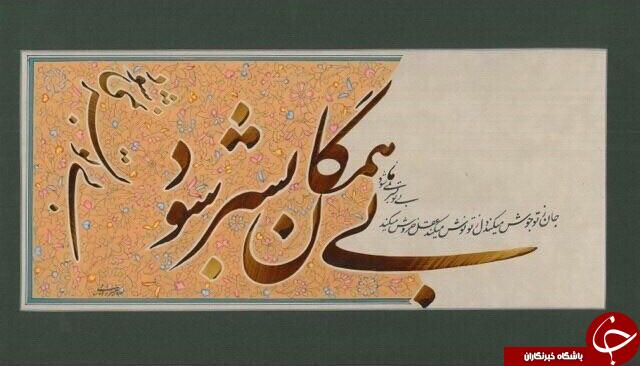 بی همگان بسر شود
بی تو بسر نمی شود
جان ز تو جوش میکند دل ز تو نوش میکند عقل خروش میکند
باشگاه خبرنگاران